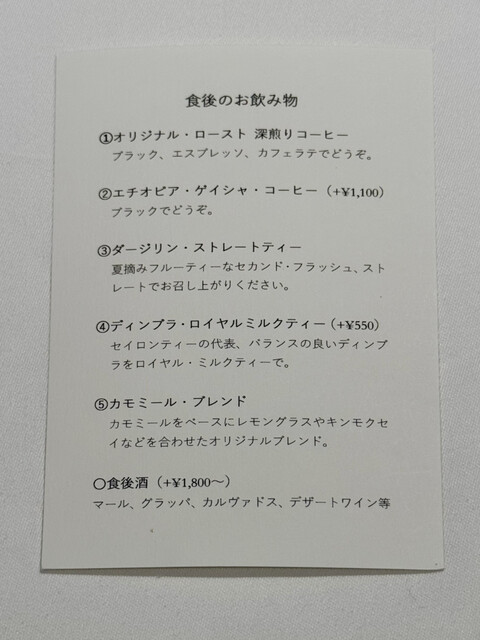 食後のお飲み物
①オリジナル・ロースト 深煎りコーヒー
ブラック、エスプレッソ、カフェラテでどうぞ。
②エチオピア・ゲイシャ・コーヒー（+¥1,100）
ブラックでどうぞ。
③ダージリン・ストレートティー
夏摘みフルーティーなセカンド・フラッシュ、スト
レートでお召し上がりください。
④ディンブラ・ロイヤルミルクティー（+¥550）
セイロンティーの代表、バランスの良いディンブ
ラをロイヤル・ミルクティーで。
⑤カモミール・ブレンド
カモミールをベースにレモングラスやキンモクセ
イなどを合わせたオリジナルブレンド。
〇食後酒（+¥1,800～）
マール、グラッパ、カルヴァドス、デザートワイン等